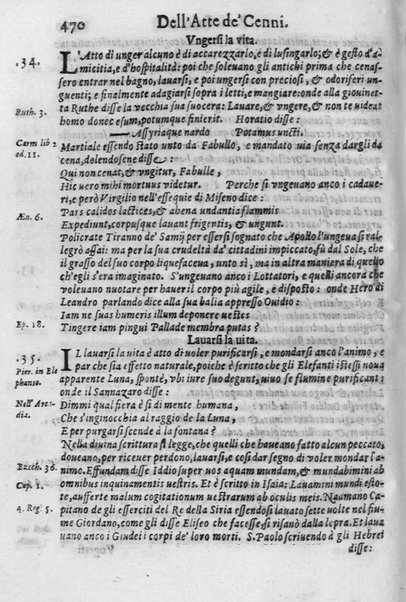 470
Dell'Arte de' Cenni.
Vngersi la vita.
.34.
L'Atto di unger alcuno è di accarezzarlo, e di lusingarlo; & è gesto d'a-
micitia, e d'hospitalità: poi che soleuano gli antichi prima che cenas-
sero entrar nel bagno, lauarsi, e poi ungersi con preciosi, & odoriferi un-
guenti; e finalmente adagiarsi sopra i letti, e mangiare: onde alla giouinet-
Ruth. 3.
ta Ruthe disse la vecchia sua suocera: Lauare, & vngere, & non te videat
homo donec esum, potumque finierit. Horatio disse:
Carm lib 2
od. 11.
—— Assyriaque nardo Potamus uncti.
Martiale essendo stato unto da Fabullo, e mandato uia senza dargli da
cena, dolendosene disse:
Qui non cenat, & vngitur, Fabulle,
Hic uero mihi mortuus videtur. Perche si vngeuano anco i cadaue-
ri, e però Virgilio nell'essequie di Miseno dice:
Æn. 6.
Pars calidos lactices, & ahena undantia flammis
Expediunt, corpusque lauant frigentis, & ungunt.
Policrate Tiranno de' Samij per essersi sognato che Apollo l'ungeua si ral-
legrò assai: ma per la sua crudeltà da' cittadini impiccato, fù dal Sole, che
il grasso del suo corpo liquefaceua, unto sì, ma in altra maniera di quello
ch'egli s'era imaginato. S'ungeuano anco i Lottatori, e quelli ancora che
voleuano nuotare per hauer il corpo più agile, e disposto: onde Hero di
Leandro parlando dice alla sua balia appresso Ouidio:
Iam ne suas humeris illum deponere uestes
Ep. 18.
Tingere iam pingui Pallade membra putas?
Lauarsi la uita.
.35.
IL lauarsi la uita è atto di uoler purificarsi, e mondarsi anco l'animo, e
Pier. in Ele
phante.
par che sia effetto naturale, poiche è scritto che gli Elefanti istessi noua
apparente Luna, spontè, vbi iure suo degunt, uiuo se flumine purificant:
onde il Sannazaro disse:
Nell' Arca-
dia.
Dimmi qual fiera è sì di mente humana,
Che s'inginocchia al raggio de la Luna,
E per purgarsi scende à la fontana?
Nella diuina scrittura si legge, che quelli che hauean fatto alcun peccato,
doueano, per riceuer perdono, lauarsi, e così dar segno di voler mondar l'a-
Ezech. 36.
nimo. Effundam disse Iddio super uos aquam mundam, & mundabimini ab
Cap. 1.
omnibus inquinamentis uestris. Et è scritto in Isaia: Lauamini mundi esto-
te, aufferte malum cogitationum uestrarum ab oculis meis. Naamano Ca-
4. Reg. 5.
pitano de gli esserciti del Re della Siria essendosi lauato sette uolte nel fiu-
me Giordano, come gli disse Eliseo che facesse, si risanò dalla lepra. Et laua
uano anco i Giudei i corpi de' loro morti. S. Paolo scriuendo à gli Hebrei
disse: